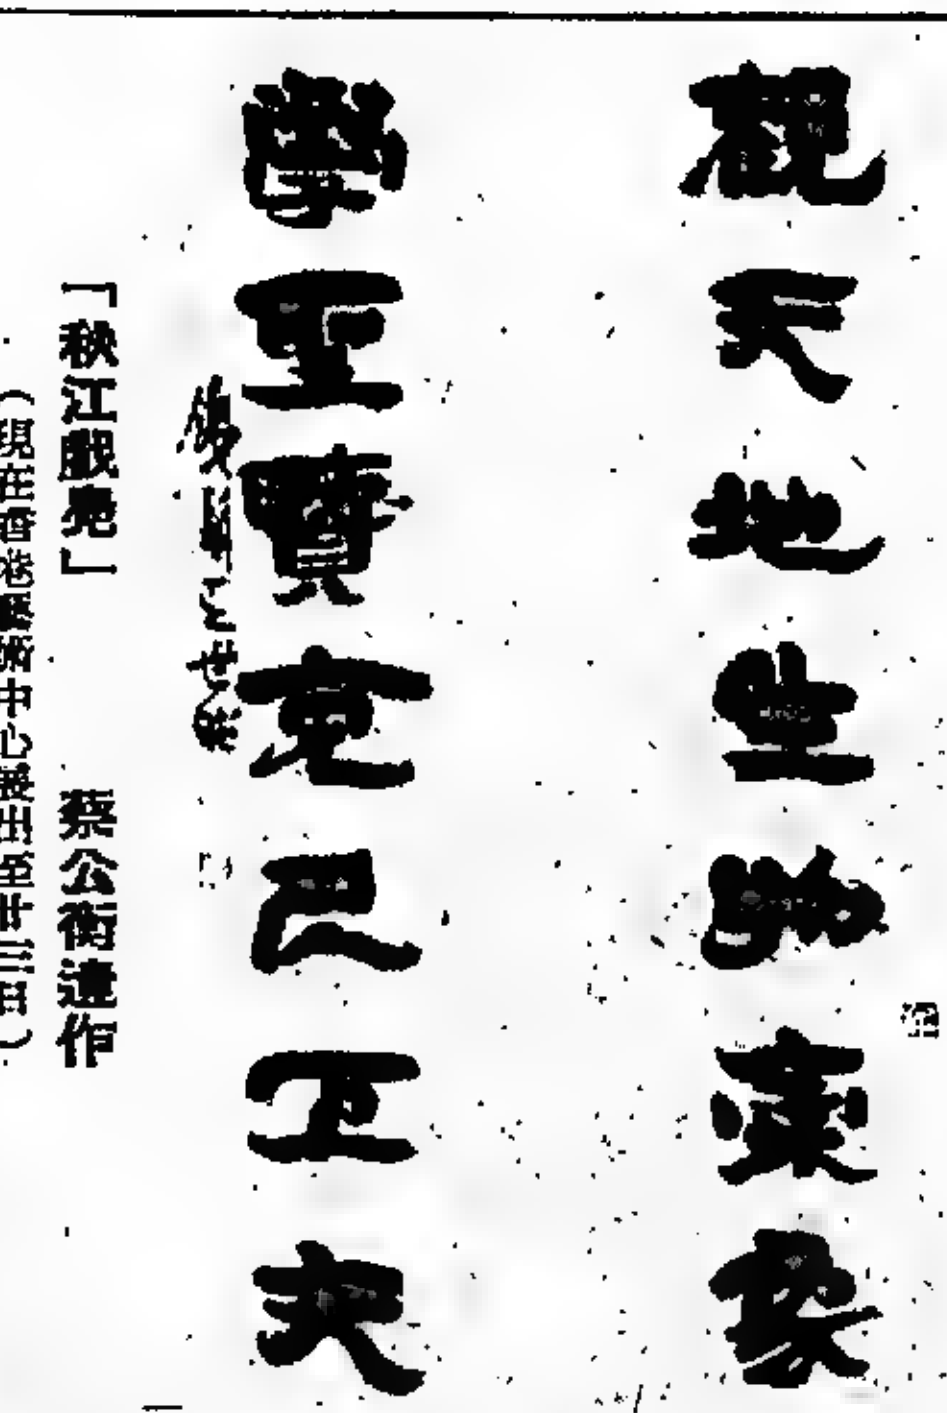 觀天地生物氣象
學聖賢克己工夫
錫
「秋江戲鳧」 蔡公衡遺作
(現在香港藝術中心展出至廿三日)